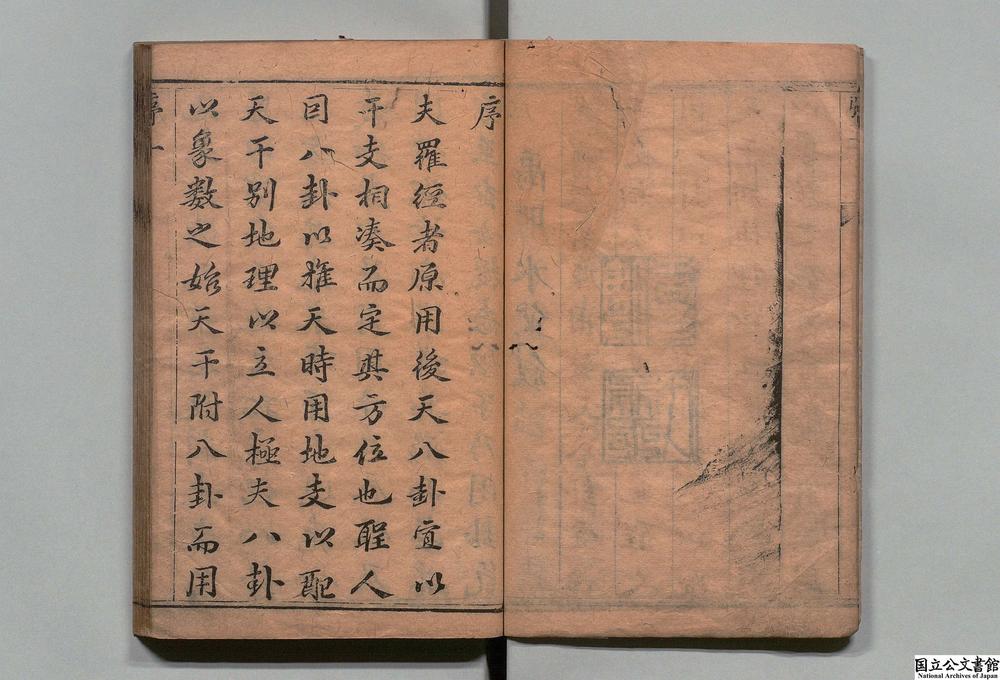 序
夫羅經者原用後天八卦宜以
干支相湊而定其方位也聖人
因八卦以推天時用地支以配
天干別地理以立人極夫八卦
以象數之始天干附八卦而用
序 一
国立公文書館
National Archives of Japan